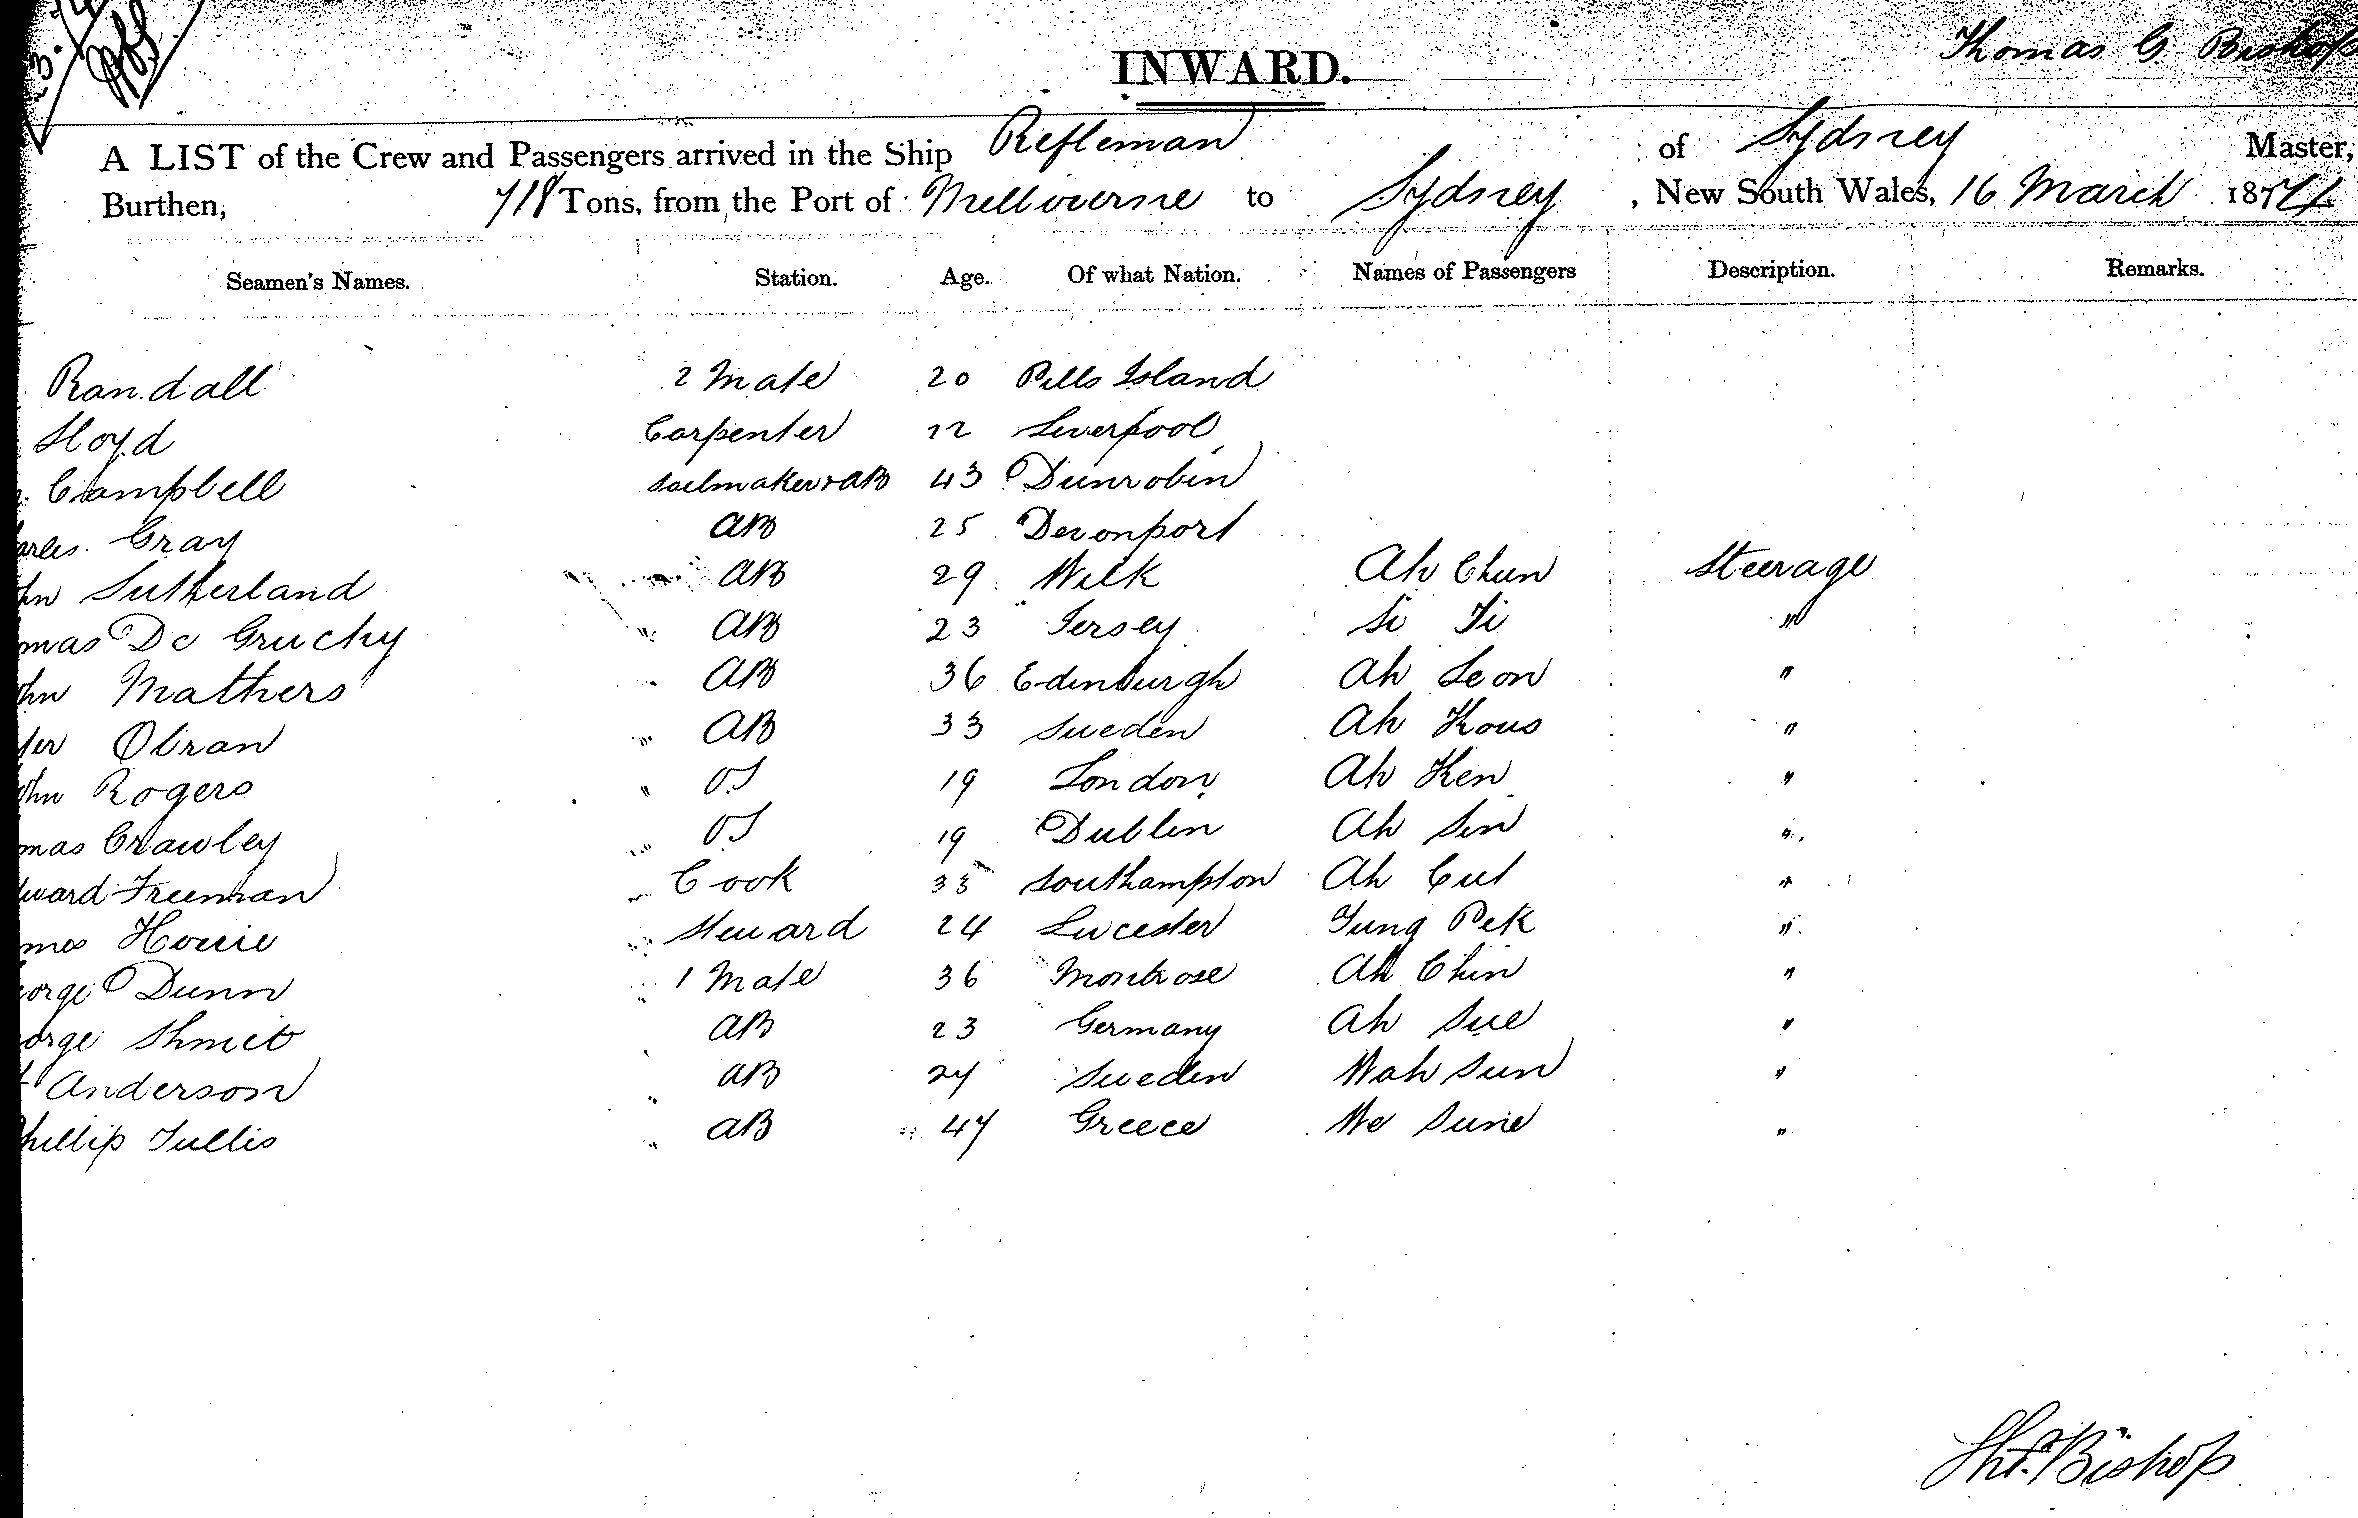 Thomas G. Bishop
INWARD.
A LIST of the Crew and Passengers arrived in the Ship Rifleman of Sydney Master,
Burthen, 718 Tons, from the Port of Melbourne to Sydney, New South Wales, 16 March 1874
Seamen's Names. Station. Age. Of what Nation. Names of Passengers Description. Remarks.
Randall 2 Mate 20 Pells Island
Lloyd Carpenter 22 Liverpool
Campbell Sailmaker & AB 43 Dunrobin
arles Gray AB 25 Devonport
hn Sutherland AB 29 Wick Ah Chun Steerage
mas De Gruchy " AB 23 Jersey Si Ti "
ohn Mathers " AB 36 Edinburgh Ah Leon "
ter Obran " AB 33 Sweden Ah Kous "
ohn Rogers " OS 19 London Ah Ken "
mas Crawley " OS 19 Dublin Ah Sin "
dward Freeman " Cook 35 Southampton Ah Cut "
mes Howie " Steward 24 Leicester Yung Pek "
orge Dunn " 1 Mate 36 Montrose Ah Chin "
orge Shmit AB 23 Germany Ah Sue "
Anderson " AB 24 Sweden Wah Sun "
hillip Tullis " AB 47 Greece We Sune "
Thos. Bishop